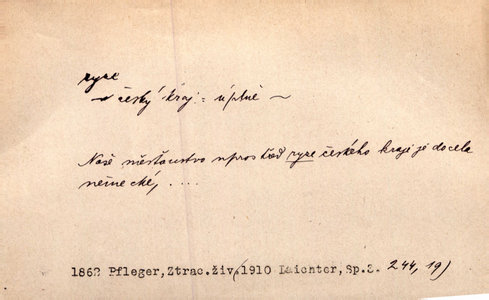 ryze
~ český kraj = úplně ~
Naše měšťanstvo uprostřed ryze českého kraje je docela
německé, ....
1862 Pfleger, Ztrac.živ.(1910 Laichter, Sp.2. 244, 19)